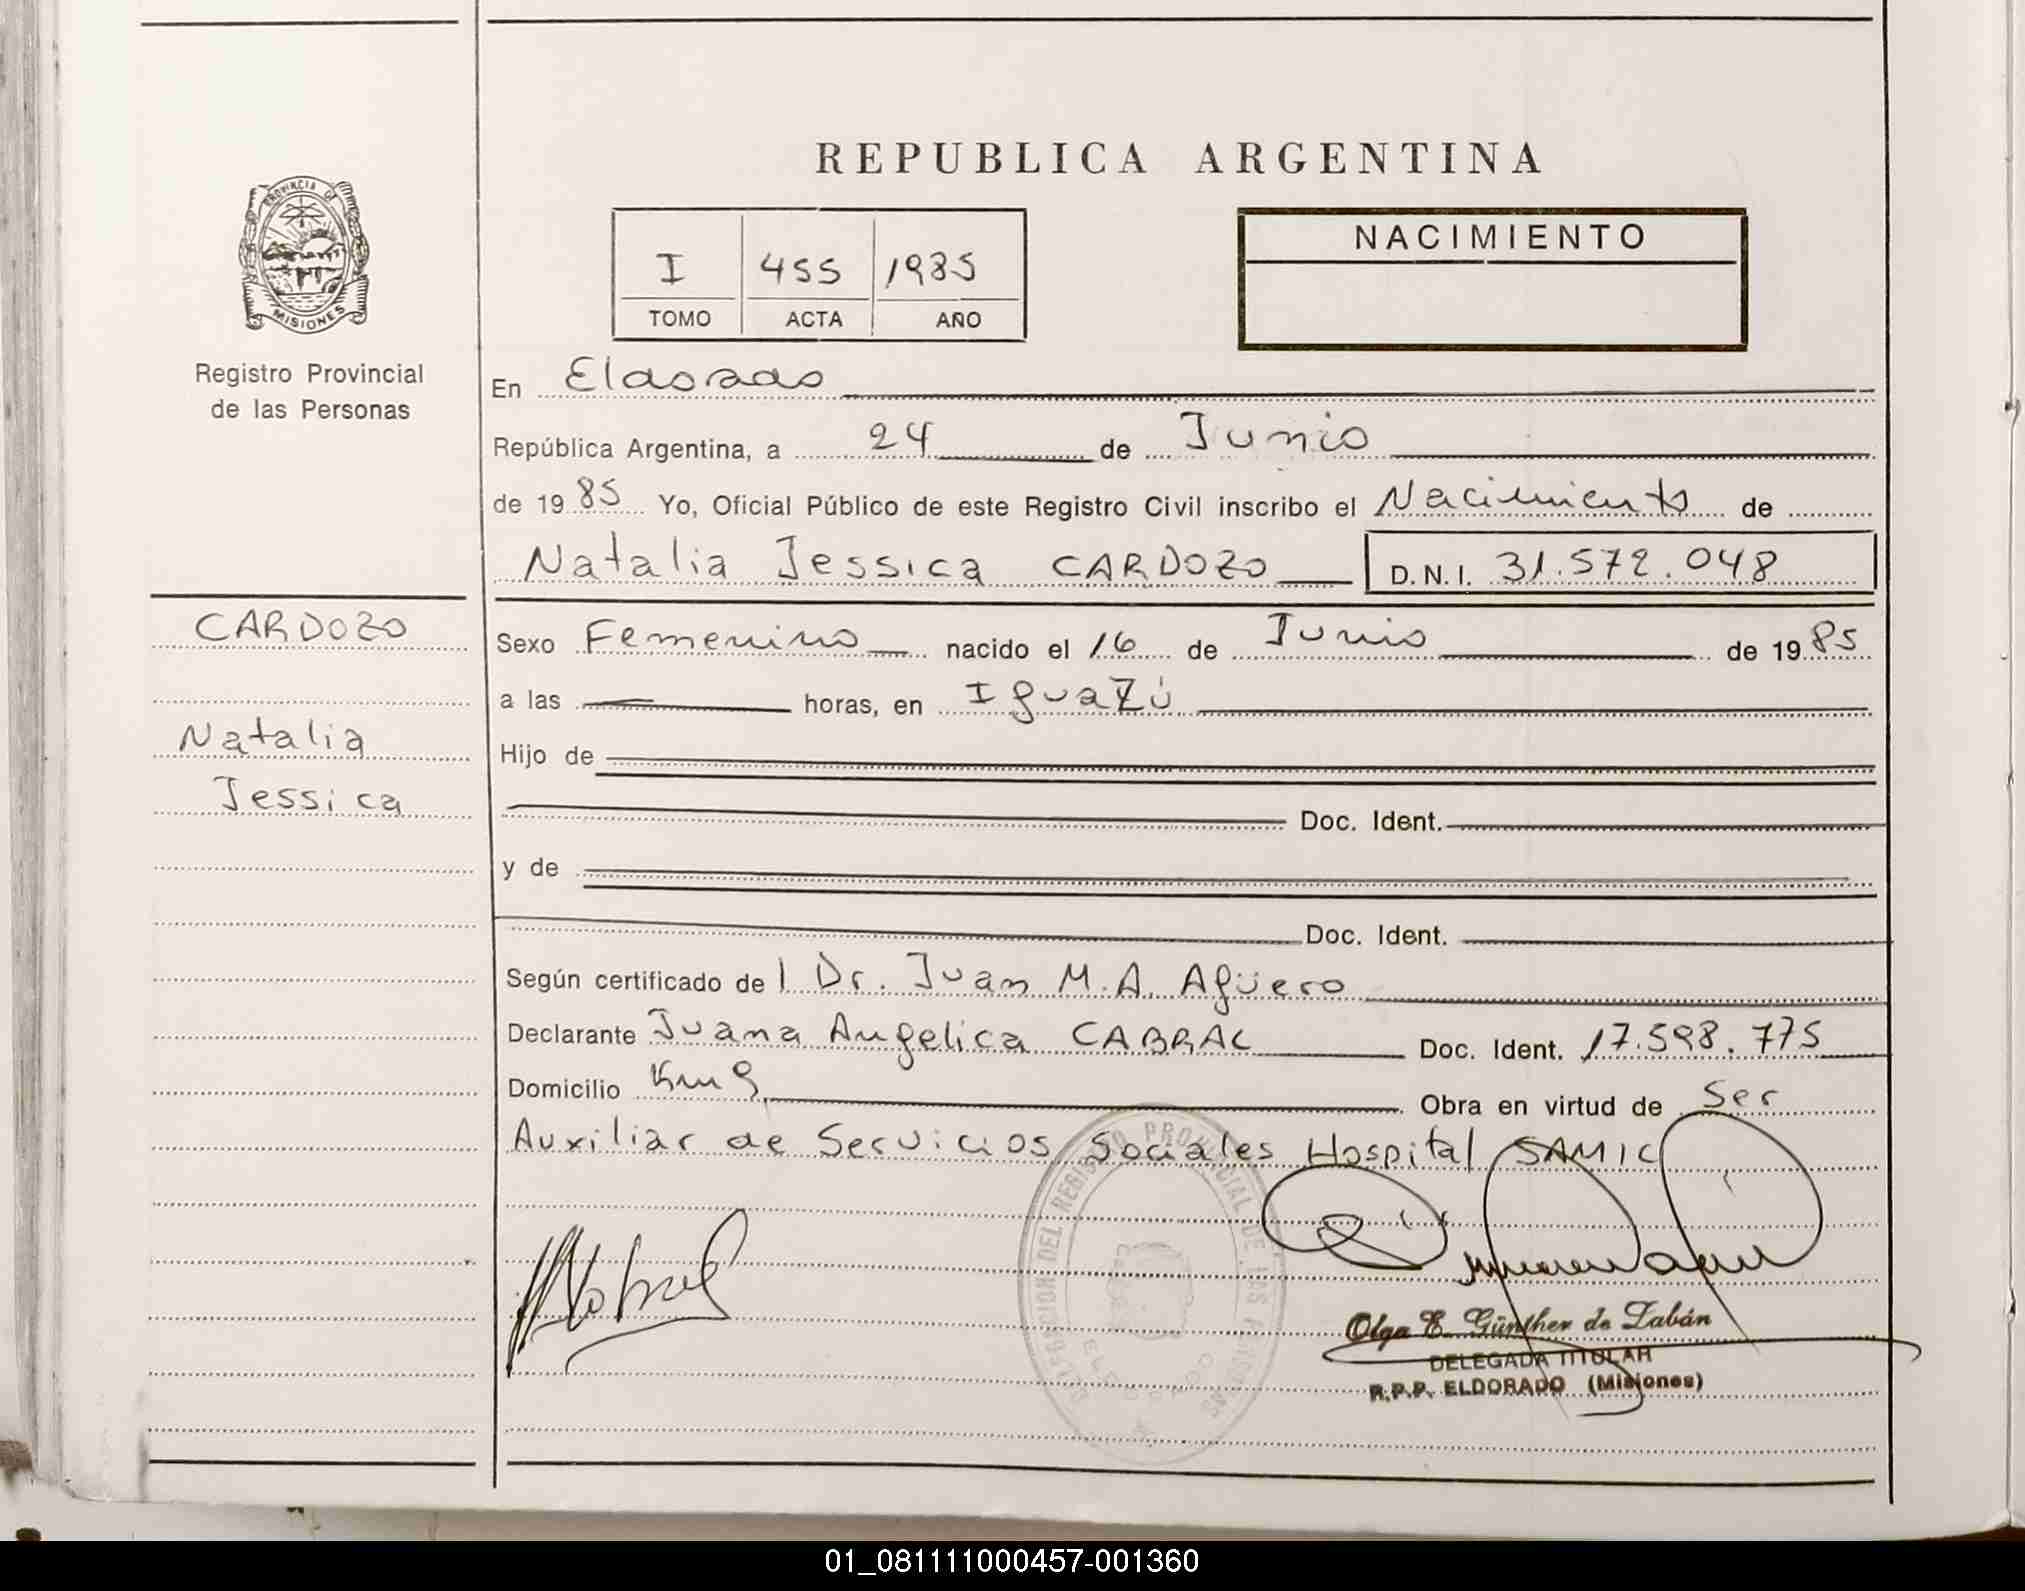 REPUBLICA ARGENTINA
PROVINCIA DE
MISIONES
Registro Provincial
de las Personas
I 455 1985
TOMO ACTA AÑO
NACIMIENTO
En Eldorado
República Argentina, a 24 de Junio
de 19 85 Yo, Oficial Público de este Registro Civil inscribo el Nacimiento de
Natalia Jessica CARDOZO D.N.I. 31.572.048
CARDOZO
Natalia
Jessica
Sexo Femenino nacido el 16 de Junio de 19 85
a las horas, en Iguazú
Hijo de
Doc. Ident.
y de
Doc. Ident.
Según certificado de l Dr. Juan M.A. Agüero
Declarante Juana Angelica CABRAL Doc. Ident. 17.598.775
Domicilio Km 9 Obra en virtud de Ser
Auxiliar de Servicios Sociales Hospital SAMIC
DELEGACION DEL REGISTRO PROVINCIAL DE LAS PERSONAS
ELDORADO
Olga E. Günther de Zabán
DELEGADA TITULAR
R.P.P. ELDORADO (Misiones)
01_081111000457-001360